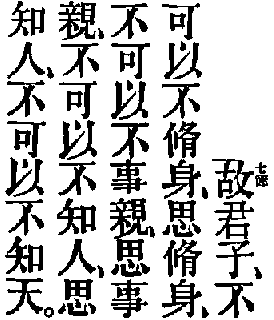 七節故君子、不
可以不脩身、思脩身、
不可以不事親、思事
親、不可以不知人、思
知人、不可以不知天。